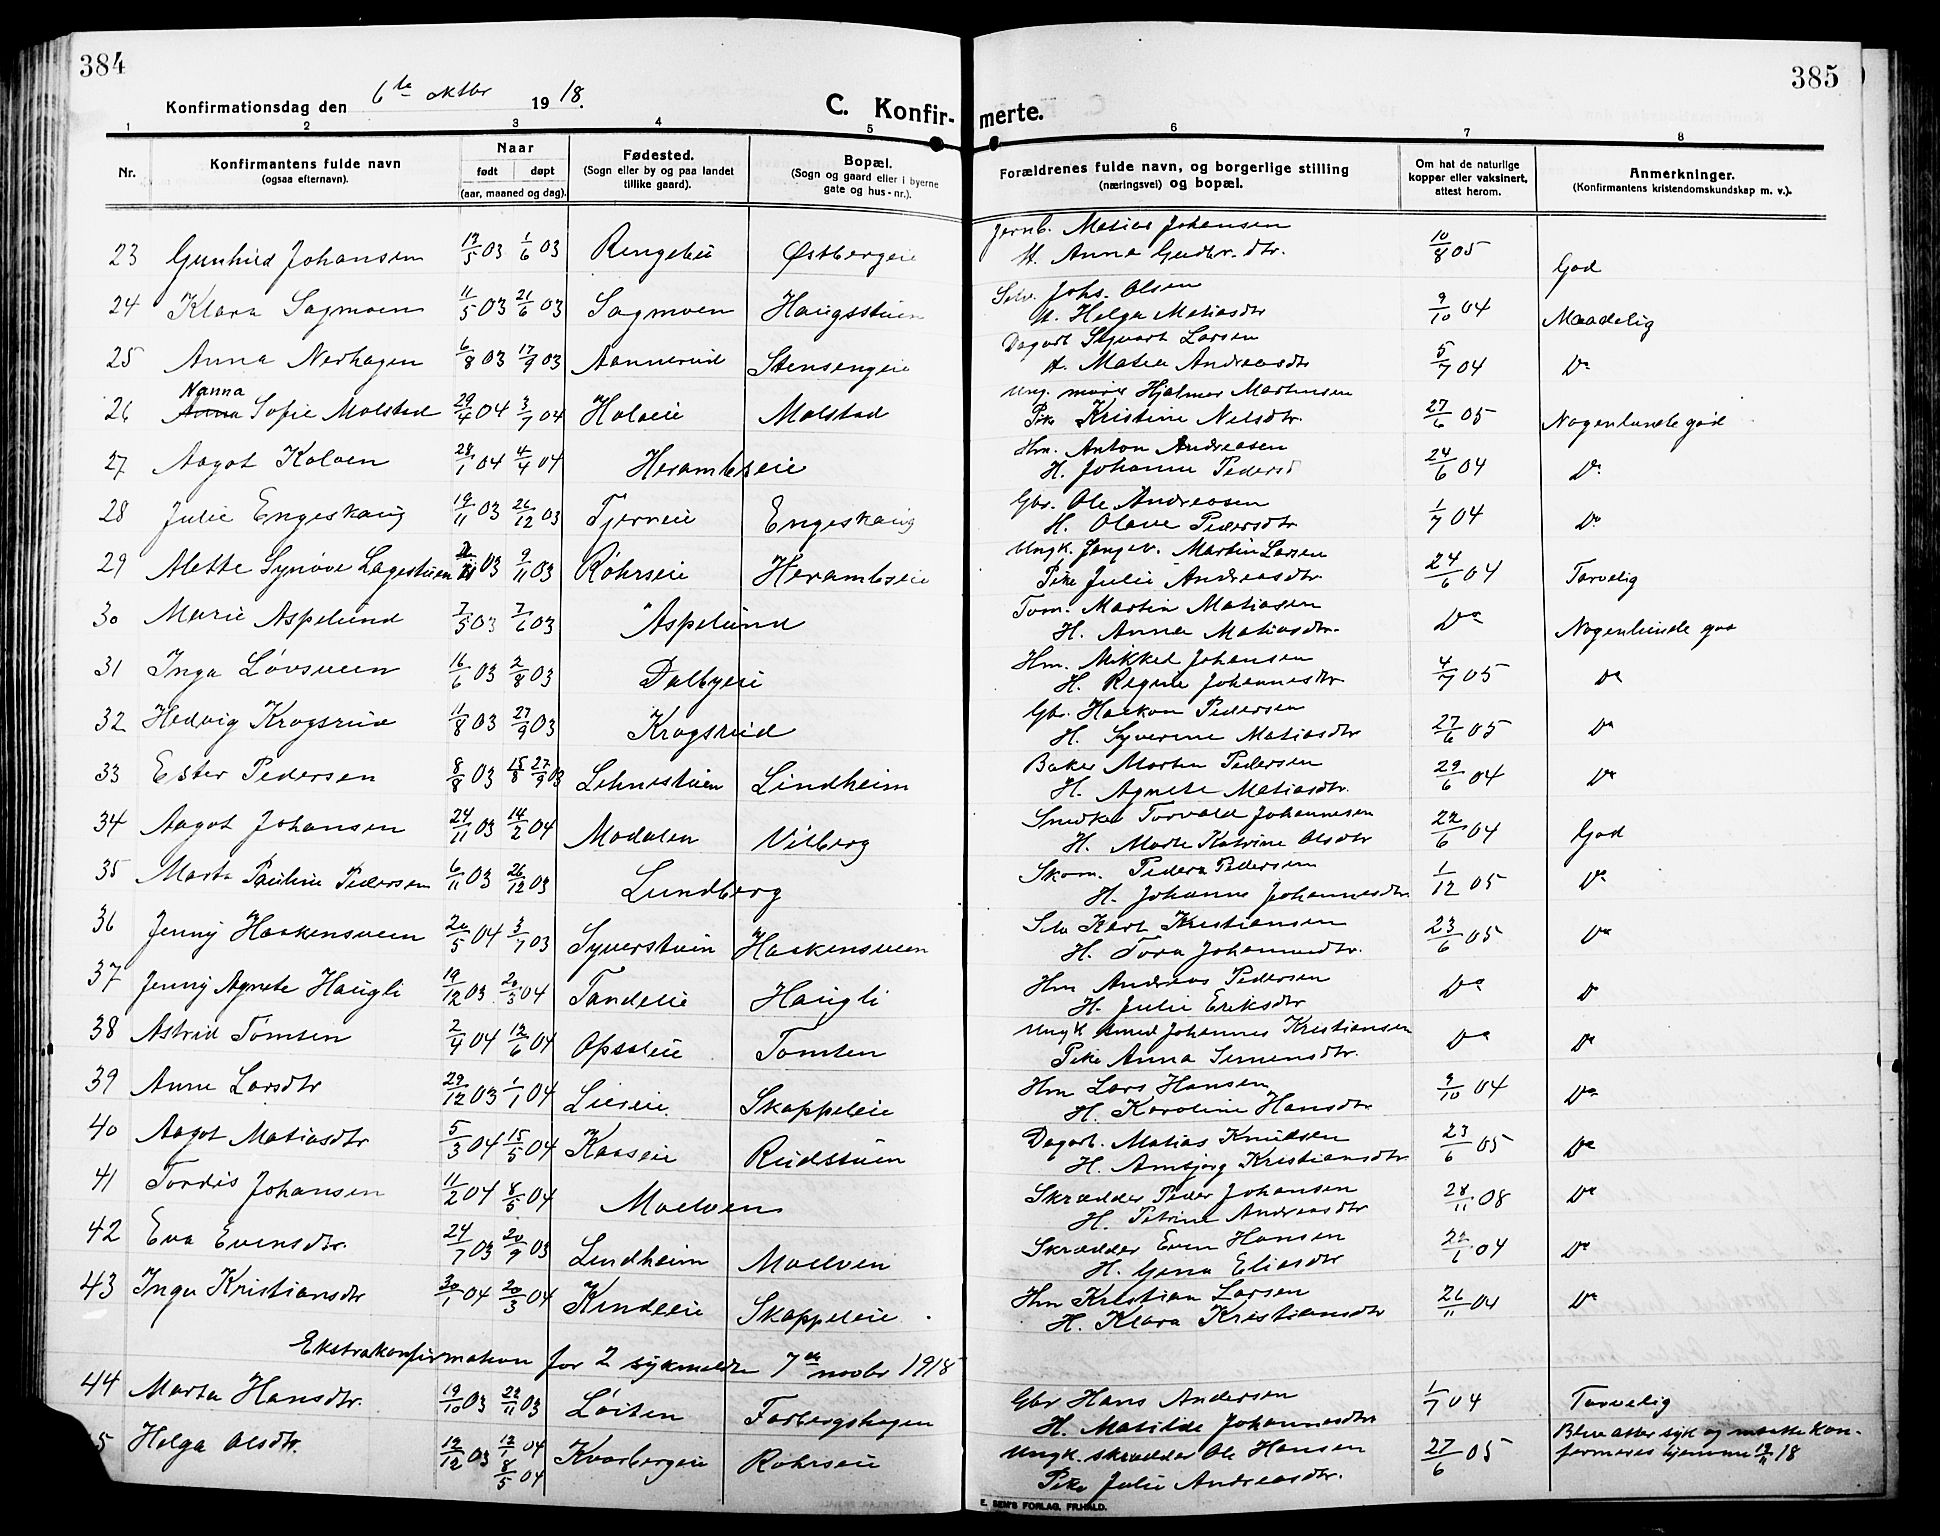 384
385
Konfirmationsdag den 6te oktbr 1918.
C. Konfir- merte.
1 2 3 4 5 6 7 8
Nr.
Konfirmantens fulde navn
(ogsaa efternavn).
Naar
født døpt
(aar, maaned og dag).
Fødested.
(Sogn eller by og paa landet
tillike gaard).
Bopæl.
(Sogn og gaard eller i byerne
gate og hus-nr.).
Forældrenes fulde navn, og borgerlige stilling
(næringsvei) og bopæl.
Om hat de naturlige
kopper eller vaksinert,
attest herom.
Anmerkninger.
(Konfirmantens kristendomskundskap m. v.).
23 Gunhild Johansen 17/5 03 1/6 03 Ringsleie Østbergeie Jernb. Matias Johansen 10/8 05 God
H. Anna Gudbr.dtr.
24 Klara Sagmoen 11/5 03 21/6 03 Sagmoen Haugsstuen Selv. Johs. Olsen 9/10 04 Maadelig
H. Helga Matiasdtr
25 Anna Nerhagen 6/8 03 17/9 03 Aannerud Stensengeie Dagarb Syvart Larsen 5/7 04 Do
H. Matea Andreasdtr
Nanna
26 Anna Sofie Molstad 29/4 04 3/7 04 Holoeie Molstad Ung. murer Hjalmer Martinsen 27/6 05 Nogenlunde god
Pike Kristine Nilsdtr.
27 Aagot Koloen 28/1 04 4/4 04 Herambseie Hm. Anton Andreasen 24/6 04 Do
H. Johanne Pedersd
28 Julie Engeskaug 19/11 03 26/12 03 Tjerneie Engeskaug Gbr. Ole Andreasen 1/7 04 Do
H. Olave Pedersdtr
29 Mette Synøve Lagestuen 03 9/11 03 Røhrseie Herambseie Ungk. Martin Larsen 24/6 04 Tarvelig
Pike Julie Andreasdtr
30 Marie Aspelund 7/5 03 7/6 03 Aspelund Tom. Martin Matiasen Do Nogenlunde god
H. Anna Matiasdtr.
31 Inga Løvsveen 16/6 03 2/8 03 Dalbyeie Hm. Mikkel Johansen 4/7 05 Do
H. Regine Johannesdtr
32 Hedvig Krogsrud 11/8 03 27/9 03 Krogsrud Gbr. Haakon Pedersen 27/6 05 Do
H. Syverine Matiasdtr
33 Ester Pedersen 8/8 03 15/8 27/9 03 Lehnestuen Lindheim Baker Martin Pedersen 29/6 04 Do
H. Agnete Matiasdtr.
34 Aagot Johansen 24/11 03 14/2 04 Modalen Vilberg Snedker Torvald Johannesen 22/6 04 God
H. Marte Katrine Olsdtr
35 Marta Pauline Pedersen 6/11 03 26/12 03 Lundberg Skom. Peder Pedersen 1/12 05 Do
H. Johanne Johannesdtr
36 Jenny Haakensveen 20/5 04 3/7 03 Syverstuen Haakensveen Selv Karl Kristiansen 23/6 05 Do
H. Tora Johannesdtr.
37 Jenny Agnete Haugli 19/12 03 20/3 04 Tandeeie Haugli Hm Andreas Pedersen Do Do
H. Julie Eriksdtr
38 Astrid Tømten 2/4 04 12/6 04 Opsaleie Tomten Ungk Johannes Kristiansen Do Do
Pike Anna Simensdtr.
39 Anne Larsdtr 29/12 03 1/1 04 Liereie Skappeleie Hm Lars Hansen 9/10 04 Do
H. Karoline Hansdtr
40 Aagot Matiasdtr 5/3 04 15/5 04 Kasseie Rudstuen Dagarb. Matias Knudsen 23/6 05 Do
H. Ambjørg Kristiansdtr
41 Tordis Johansen 11/2 04 8/5 04 Moelven Skrædder Peder Johansen 28/11 08 Do
H. Petrine Andreasdtr
42 Eva Evensdtr. 24/7 03 20/9 03 Lindheim Moelven Skrædder Even Hansen 22/6 04 Do
H. Gena Eliasdtr
43 Inga Kristiansdtr 30/1 04 20/3 04 Kindeeie Skappeleie. Hm Kristian Larsen 26/11 04 Do
H. Klara Kristiansdtr
Ekstrakonfirmation for 2 sykmeldte 7de novbr 1918
44 Marta Hansdtr. 19/10 03 22/11 03 Løiten Farbergshagen Gbr Hans Andersen 1/7 04 Tarvelig
H. Matilde Johannesdtr
5 Helga Olsdtr. 12/12 03 12/1 04 8/5 04 Kvarbergeie Røhrseie Ungk. skrædder Ole Hansen 27/6 05 Blev atter syk og maatte kon-
firmeres hjemme 12/11 18
Pike Julie Andreasdtr.
E. SEM'S FORLAG, FR.HALD.